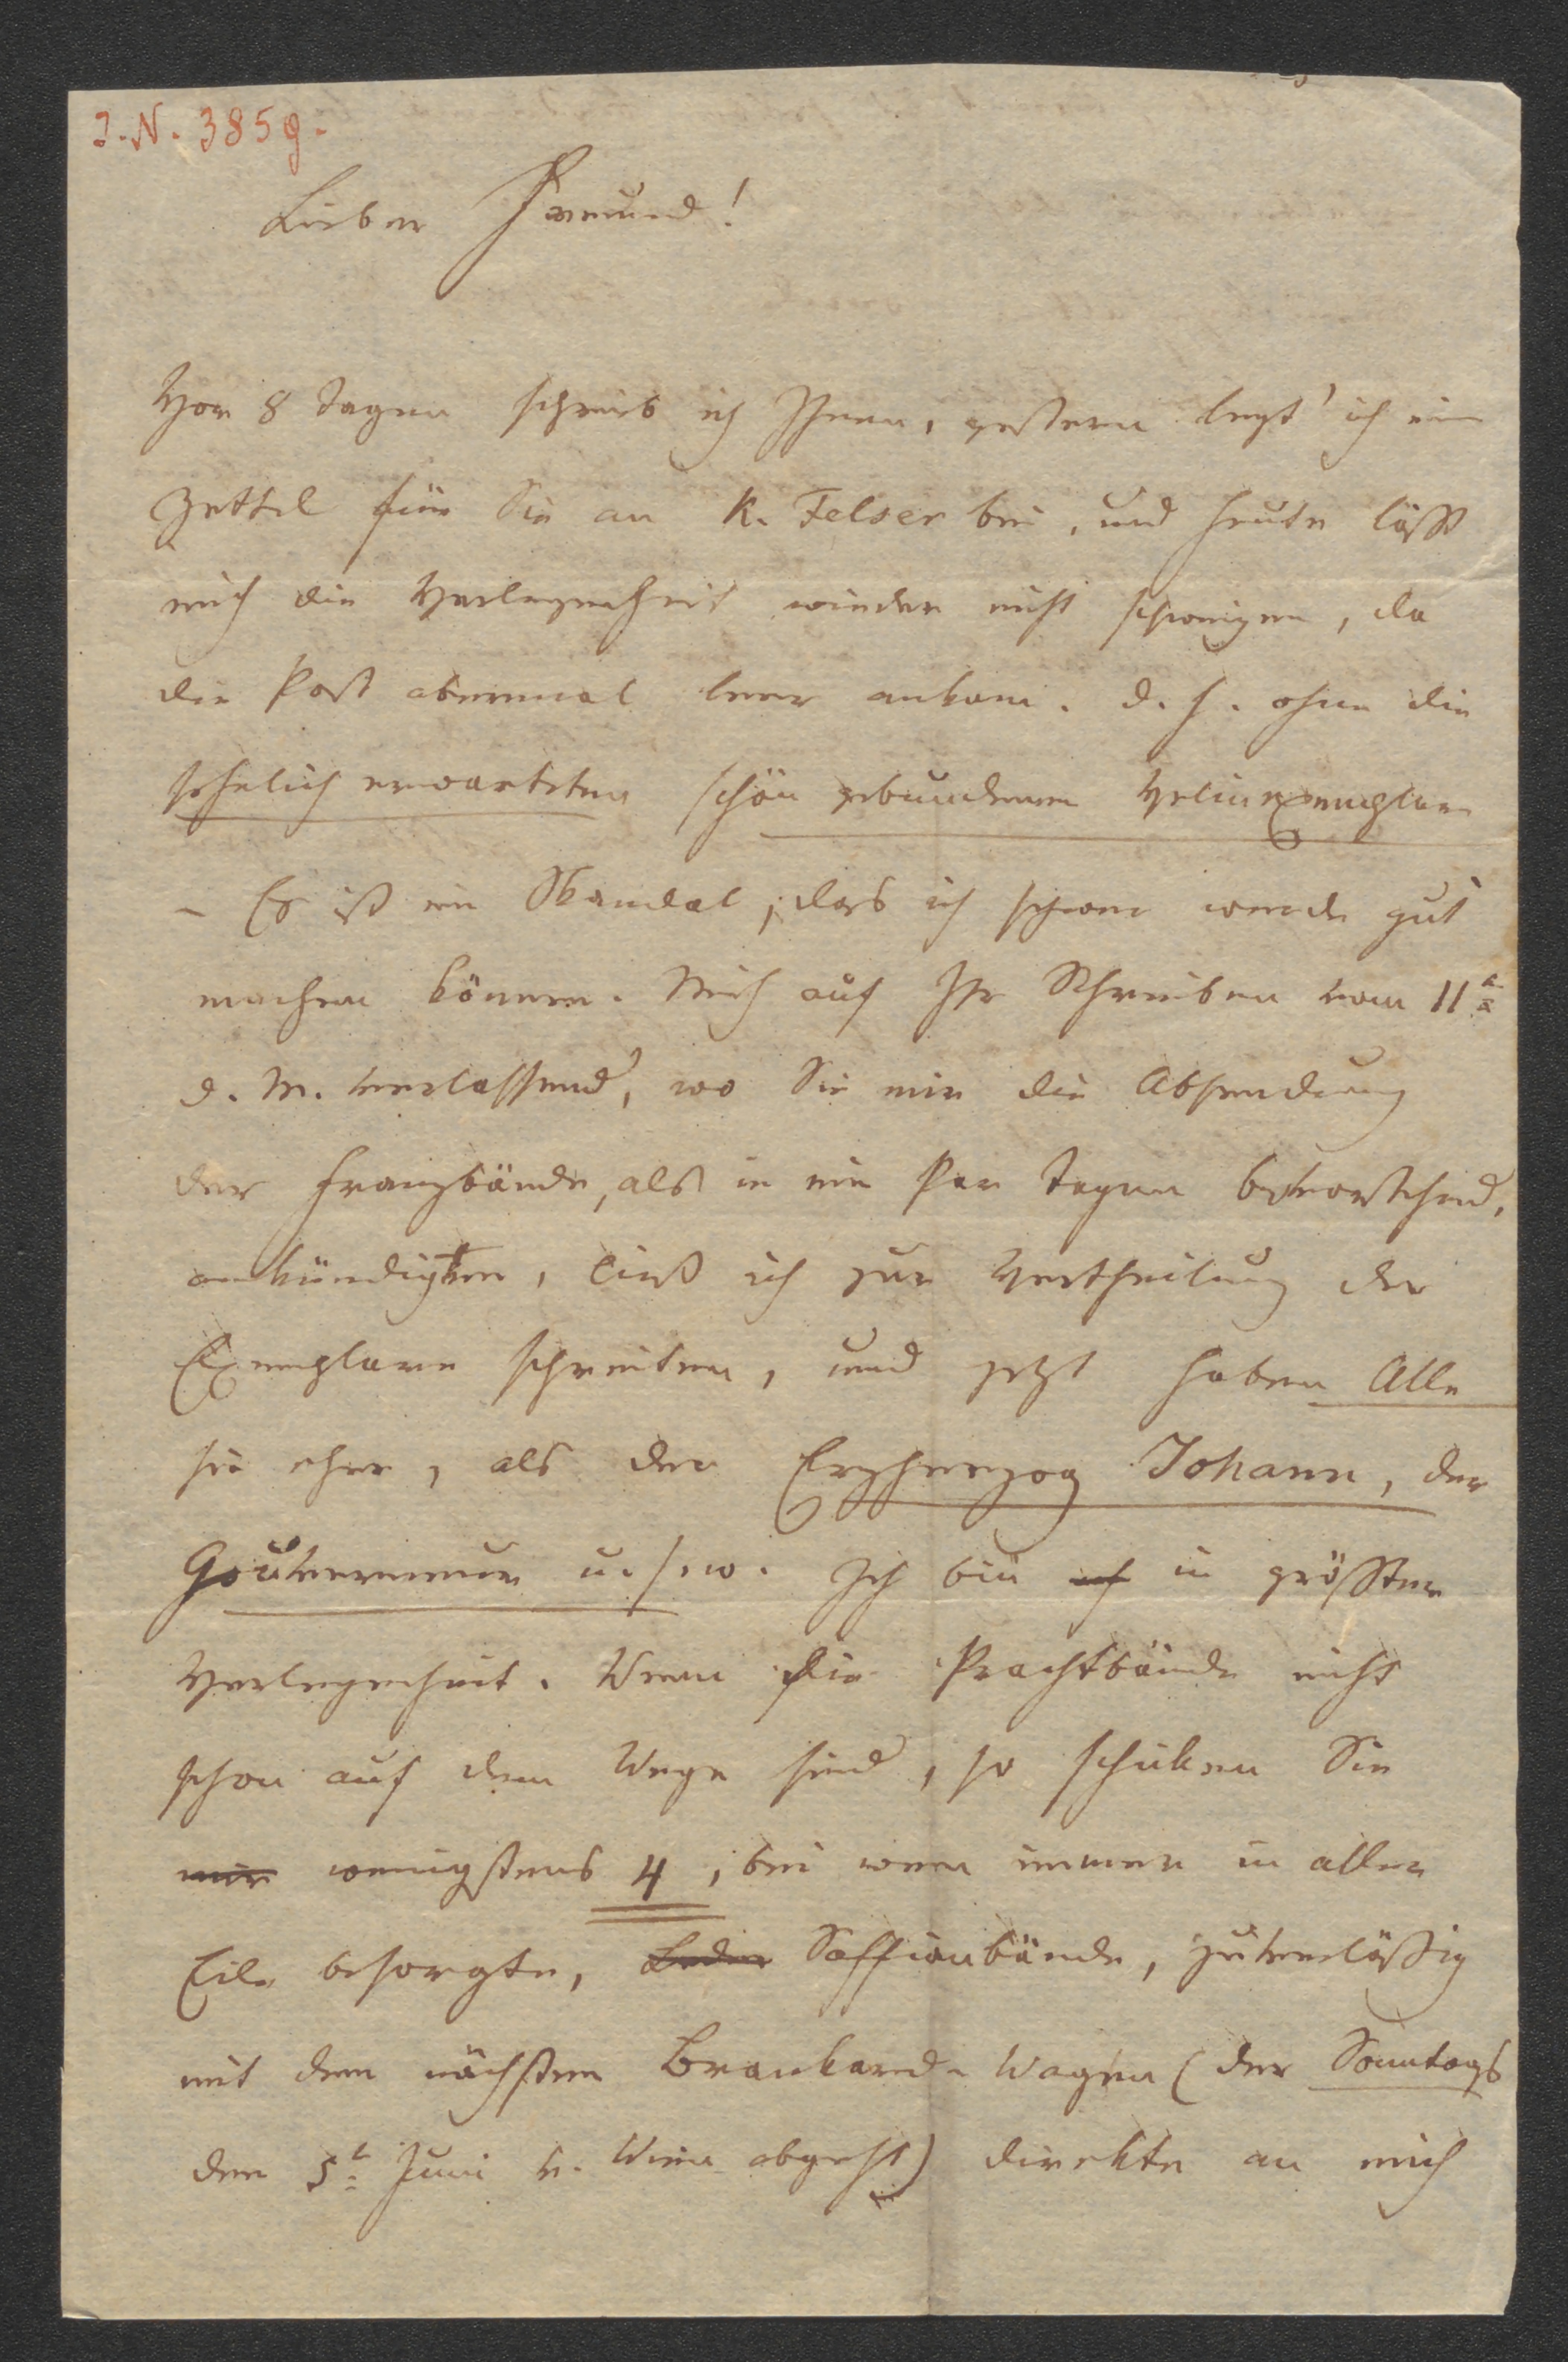 I.N. 3859.
Lieber Freund!
Vor 8 Tagen schrieb ich Ihnen, gestern legt' ich ein
Zettel für Sie an K. Felser bei, und heute läßt
mich die Verlegenheit wieder nicht schweigen, da
die Post abermal leer ankam. d. h. ohne die
sehnlich erwarteten schön gebundenen Velinexemplare
– Es ist ein Skandal, das ich schwer werde gut
machen können. Mich auf Ihr Schreiben vom 11
d. M. verlassend, wo Sie mir die Absendung
der Franzbände, als in ein Par Tagen bevorstehend,
ankündigten, ließ ich zur Vertheilung der
Exemplare schreiten, und jetzt haben Alle
sie eher, als der Erzherzog Johann, der
Gouverneur u. s. w. Ich bin ich in größter
Verlegenheit. Wenn die Prachtbände nicht
schon auf dem Wege sind, so schicken Sie
mir wenigstens 4, bei wem immer in aller
Eile besorgte, Leder Saffianbände, zuverläßig
mit dem nächsten Brankard-Wagen (der Sonntags
den 5t Juni v. Wien abgeht) direkte an mich